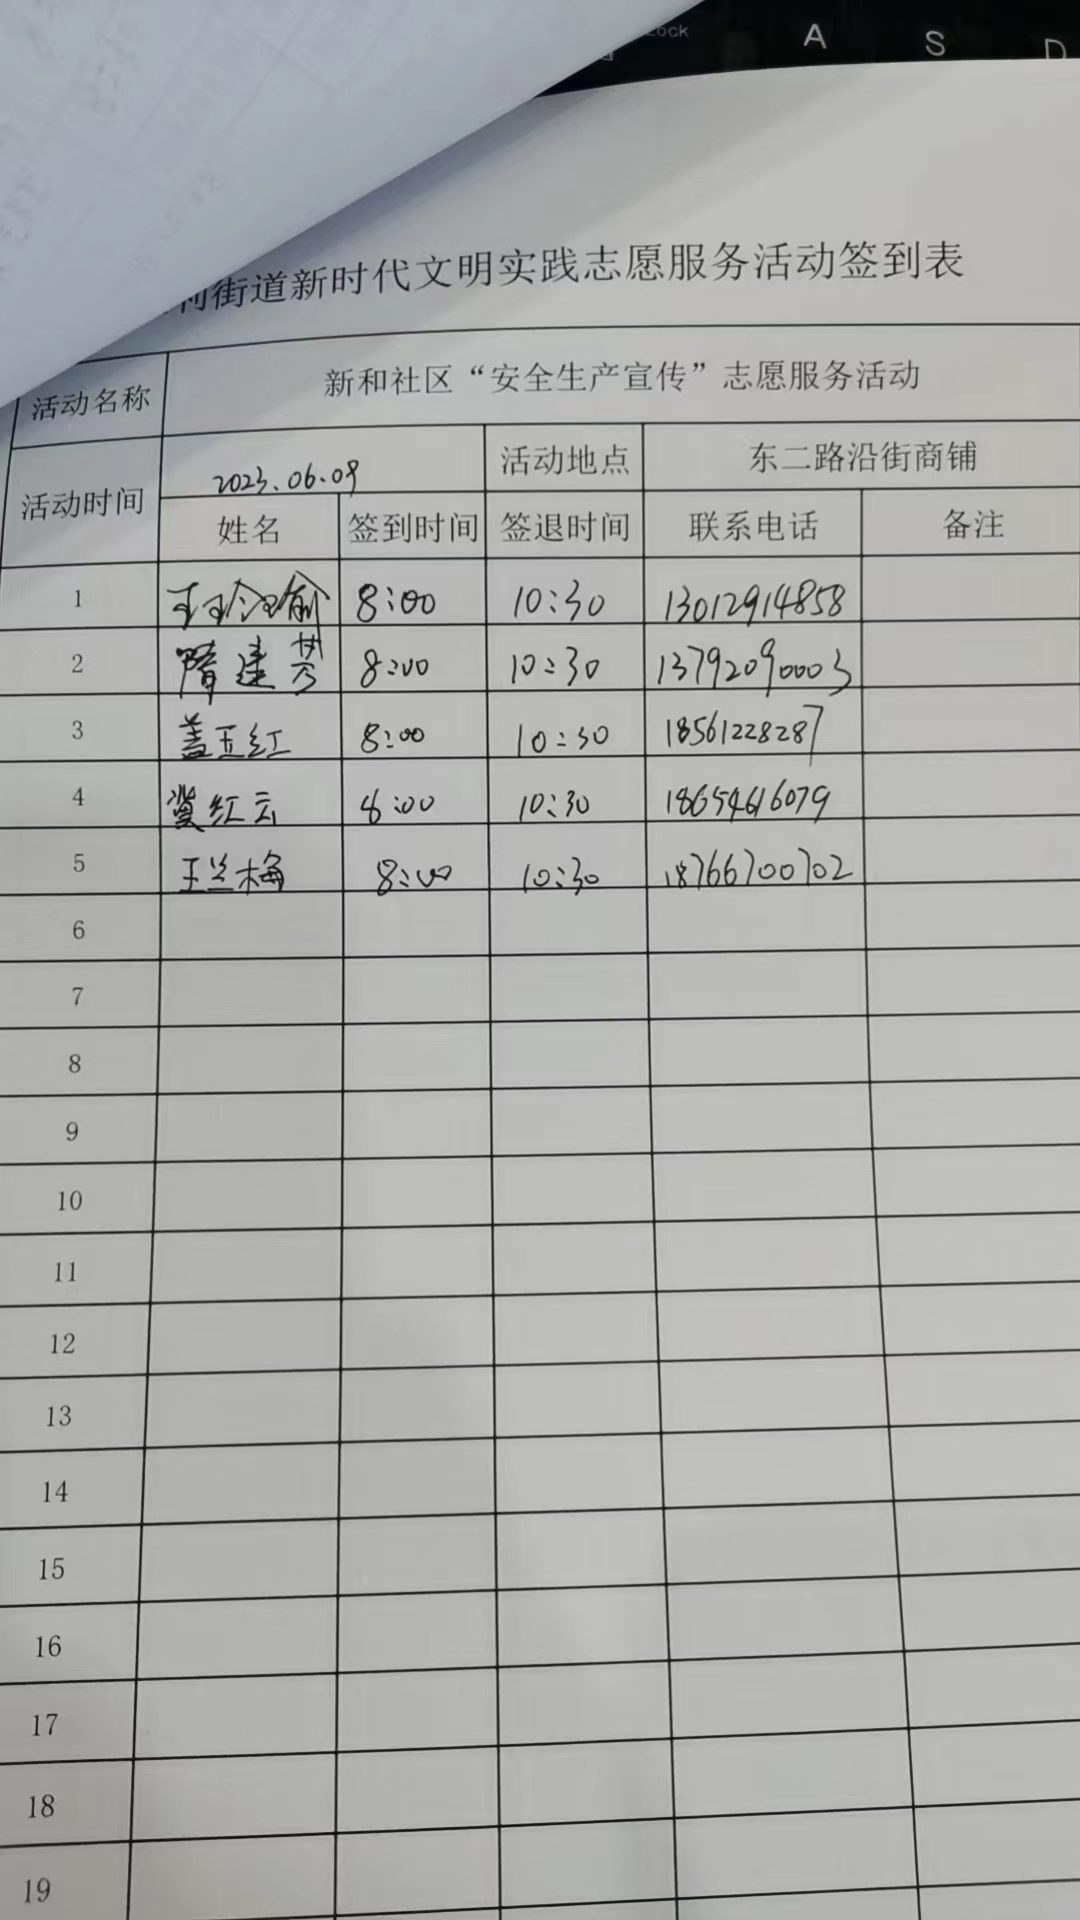 Lock
A S D
街道新时代文明实践志愿服务活动签到表
活动名称 新和社区“安全生产宣传”志愿服务活动
活动时间 2023.06.09 活动地点 东二路沿街商铺
姓名 签到时间 签退时间 联系电话 备注
1 8:00 10:30 13012914858
2 隋建芳 8:00 10:30 13792090003
3 盖玉红 8:00 10:30 18561228287
4 红云 8:00 10:30 18654616079
5 王兰梅 8:00 10:30 18766700702
6
7
8
9
10
11
12
13
14
15
16
17
18
19